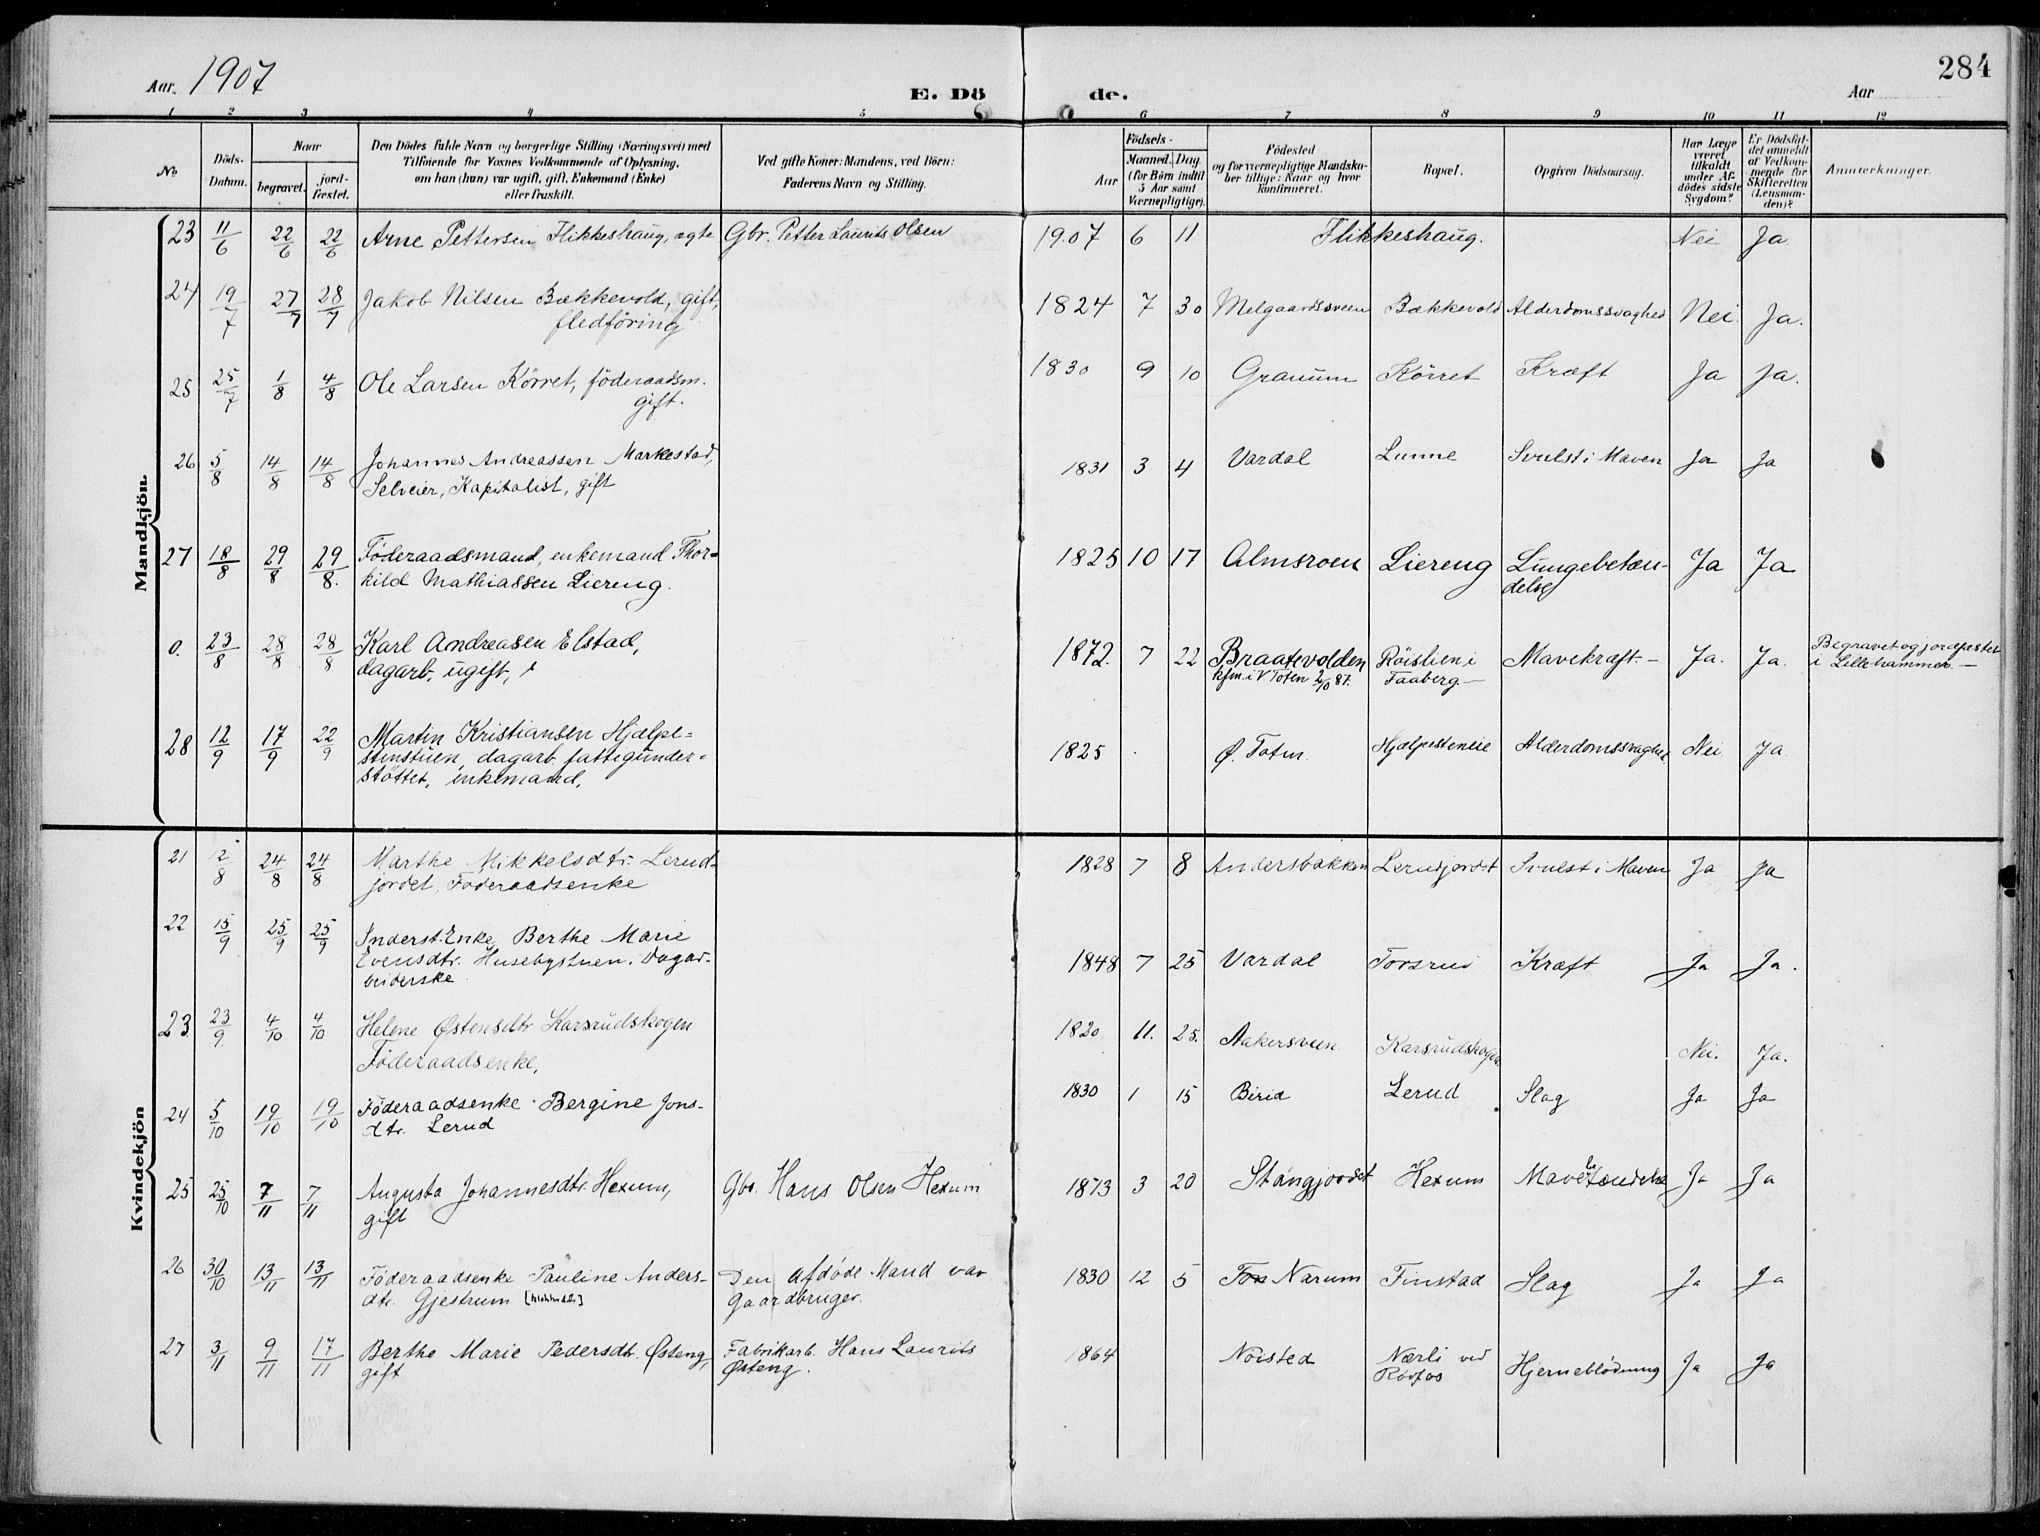 Aar. 1907
E. Dö
de.
Aar
284
1 2 3 4 5 6 7 8 9 10 11 12
No
Döds-Datum.
Naar
begravet.
jordfæstet.
Den Dödes fulde Navn og borgerlige Stilling (Næringsvei) med
Tilföiende for Voxnes Vedkommende af Oplysning,
om han (hun) var ugift, gift, Enkemand (Enke)
eller fraskilt.
Ved gifte Koner: Mandens, ved Börn:
Faderens Navn og Stilling.
Födsels-
Aar
Maaned. Dag.
(for Börn indtil
5 Aar samt
Værnepligtige).
Födested
og for værnepligtige Mandskaber tillige: Naar og hvor
konfirmeret.
Bopæl.
Opgiven Dödsaarsag.
Har Læge
været
tilkaldt
under Afdödes sidste
Sygdom?
Er Dödsfaldet anmeldt
af Vedkommende for
Skifteretten
(Lensmanden)?
Anmærkninger.
Mandkjön.
23 11/6 22/6 22/6 Arne Pettersen Flikkeshaug, ægte Gbr. Petter Laurits Olsen 1907 6 11 Flikkeshaug. Nei Ja.
24 19/7 27/7 28/7 Jakob Nilsen Bækkevold, gift, 1824 7 30 Melgaardssveen Bækkevold Alderdomssvaghed Nei. Ja.
fledföring
25 25/7 1/8 4/8 Ole Larsen Körret, föderaadsm. 1830 9 10 Granum Körret Kræft Ja Ja.
gift.
26 5/8 14/8 14/8 Johannes Andreassen Markestad, 1831 3 4 Vardal Lunne Svulst i Maven Ja Ja
Selveier, Kapitalist, gift
27 18/8 29/8 29/8. Föderaadsmand, enkemand Thor= 1825 10 17 Almsroen Liereng Lungebetæn- Ja Ja
kild Mathiassen Liereng. delse
0. 23/8 28/8 28/8 Karl Andreasen Elstad, 1872. 7 22 Braatevolden Röislien i Mavekræft.- Ja. Ja. Begravet og jordfestet
dagarb. ugift, kfm. i V Toten 2/10 87. Faaberg.- i Lillehammer.-
28 12/9 17/9 22/9 Martin Kristiansen Hjælpe= 1825 Ø. Toten. Hjælpesteneie Alderdomssvaghed. Nei Ja
stenstuen, dagarb. fattigunder=
støttet, enkemand.
Kvindekjön
21 12/8 24/8 24/8 Marthe Mikkelsdtr. Lerud- 1828 7 8 Andersbakken Lerudjordet Svulst i Maven Ja Ja
jordet, Föderaadsenke
22 15/9 25/9 25/9 Inderst.Enke Berthe Marie
Evensdtr. Husebystuen. Dagar- 1848 7 25 Vardal Torsrud Kræft Ja Ja.
beiderske
23 23/9. 4/10 4/10 Helene Østensdtr Karsrudskogen 1820 11. 25. Aakersveen. Karsrudskogen Nei. Ja.
Føderaadsenke,
24 5/10 19/10 19/10 Föderaadsenke Bergine Jons- 1830 1 15 Birid Lerud Slag Ja Ja
dtr. Lerud
25 25/10 7/11 7/11 Augusta Johannesdtr. Hexum, Gbr. Hans Olsen Hexum 1873 3 20 Stangjordet Hexum Ja Ja
gift
26 30/10 13/11 13/11 Föderaadsenke Pauline Anders- Den afdöde Mand var 1830 12 5 Narum Finstad Slag Ja Ja
dtr. Gjestrum Gaardbruger.
27 3/11 9/11 17/11 Berthe Marie Pedersdtr. Østeng, Fabrikarb. Hans Laurits 1864 Noisted Nærli ved Hjerneblödning Ja Ja
gift Østeng. Røxfos